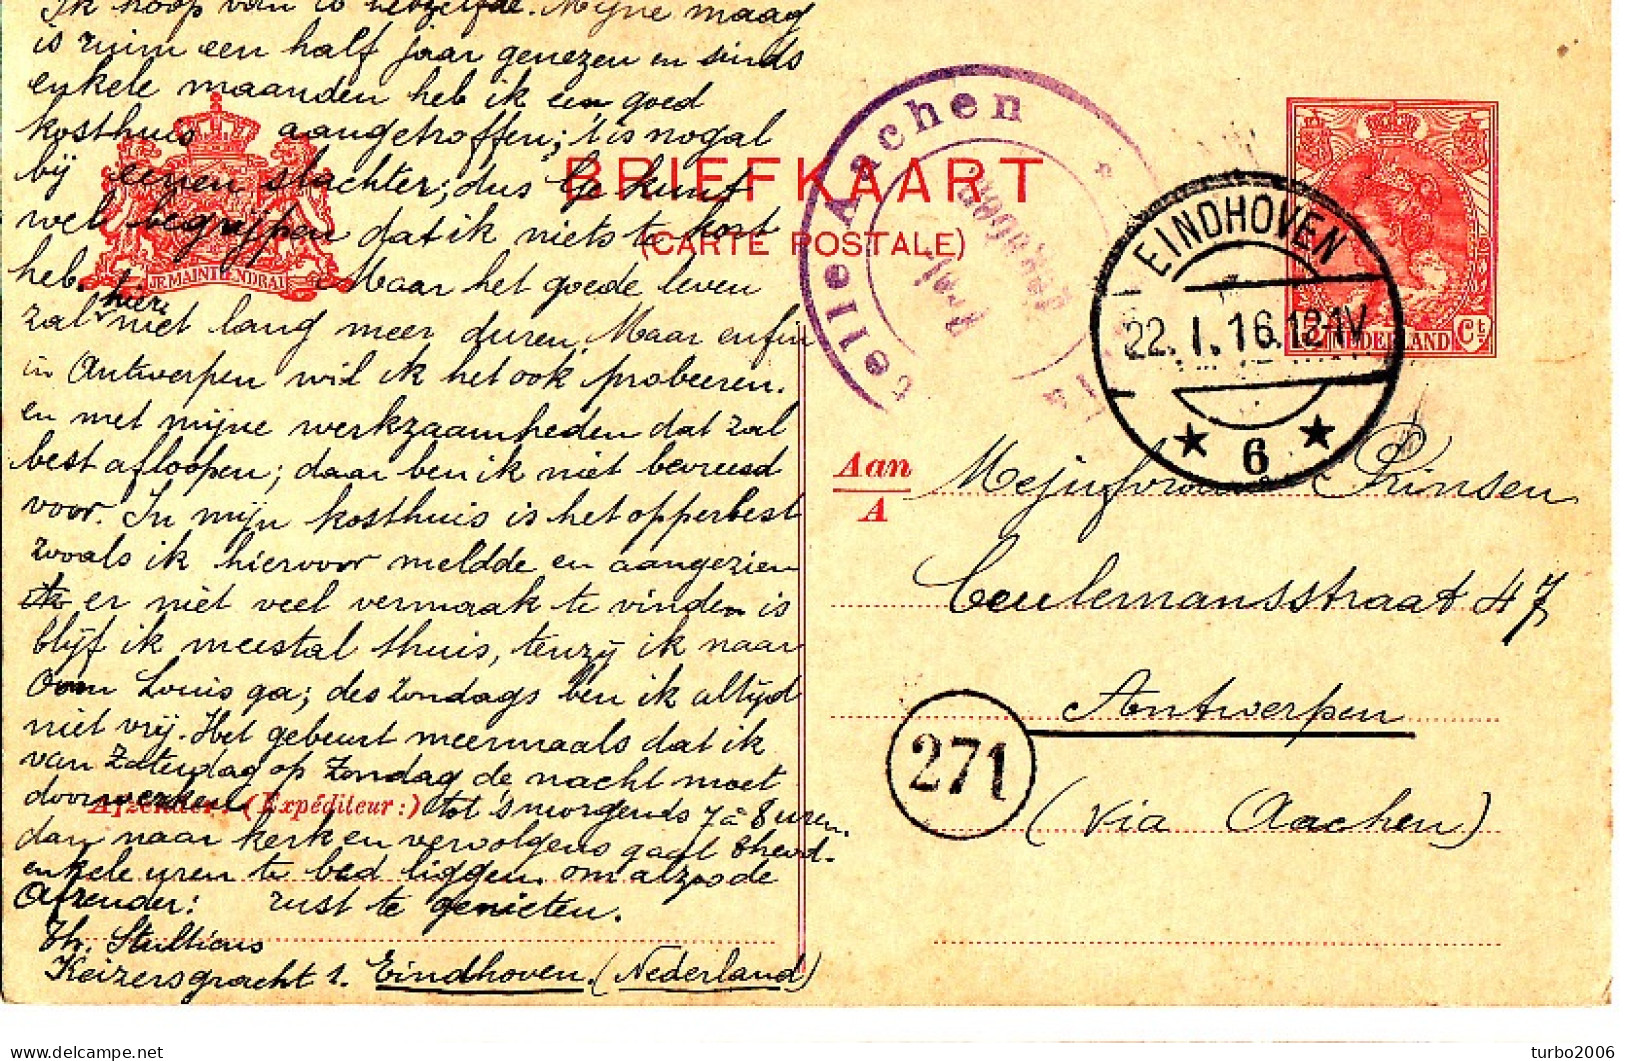 Ik hoop van U hetzelfde. Mijne maag
is ruim een half jaar genezen en sinds
enkele maanden heb ik een goed
kosthuis aangetroffen; 't is nogal
bij eenen slachter; dus Ge kunt
wel begrijpen dat ik niets te kort
heb. Maar het goede leven
zal hier niet lang meer duren. Maar enfin
in Antwerpen wil ik het ook probeeren.
en met mijne werkzaamheden dat zal
best afloopen; daar ben ik niet bevreesd
voor. In mijn kosthuis is het opperbest
zooals ik hiervoor meldde en aangezien
er niet veel vermaak te vinden is
blijf ik meestal thuis, tenzij ik naar
Oom Louis ga; des Zondags ben ik altijd
niet vrij. Het gebeurt meermaals dat ik
van Zaterdag op Zondag de nacht moet
doorwerken tot 's morgends 7 à 8 uren.
dan naar kerk en vervolgens gaat
enkele uren te bed liggen. om alzoo de
Afzender: rust te genieten.
Th. Stultiens
Keizersgracht 1. Eindhoven. (Nederland)
JE MAINTIENDRAI
Afzender: (Expéditeur:)
BRIEFKAART
(CARTE POSTALE)
Aachen
EINDHOVEN
22.1.16.12-1V
6
NEDERLAND
Ct
Aan
A
Mejufvrouw Prinsen
Ceulemansstraat 47
Antwerpen
271
(via Aachen)
turbo2006.delcampe.net
turbo2006